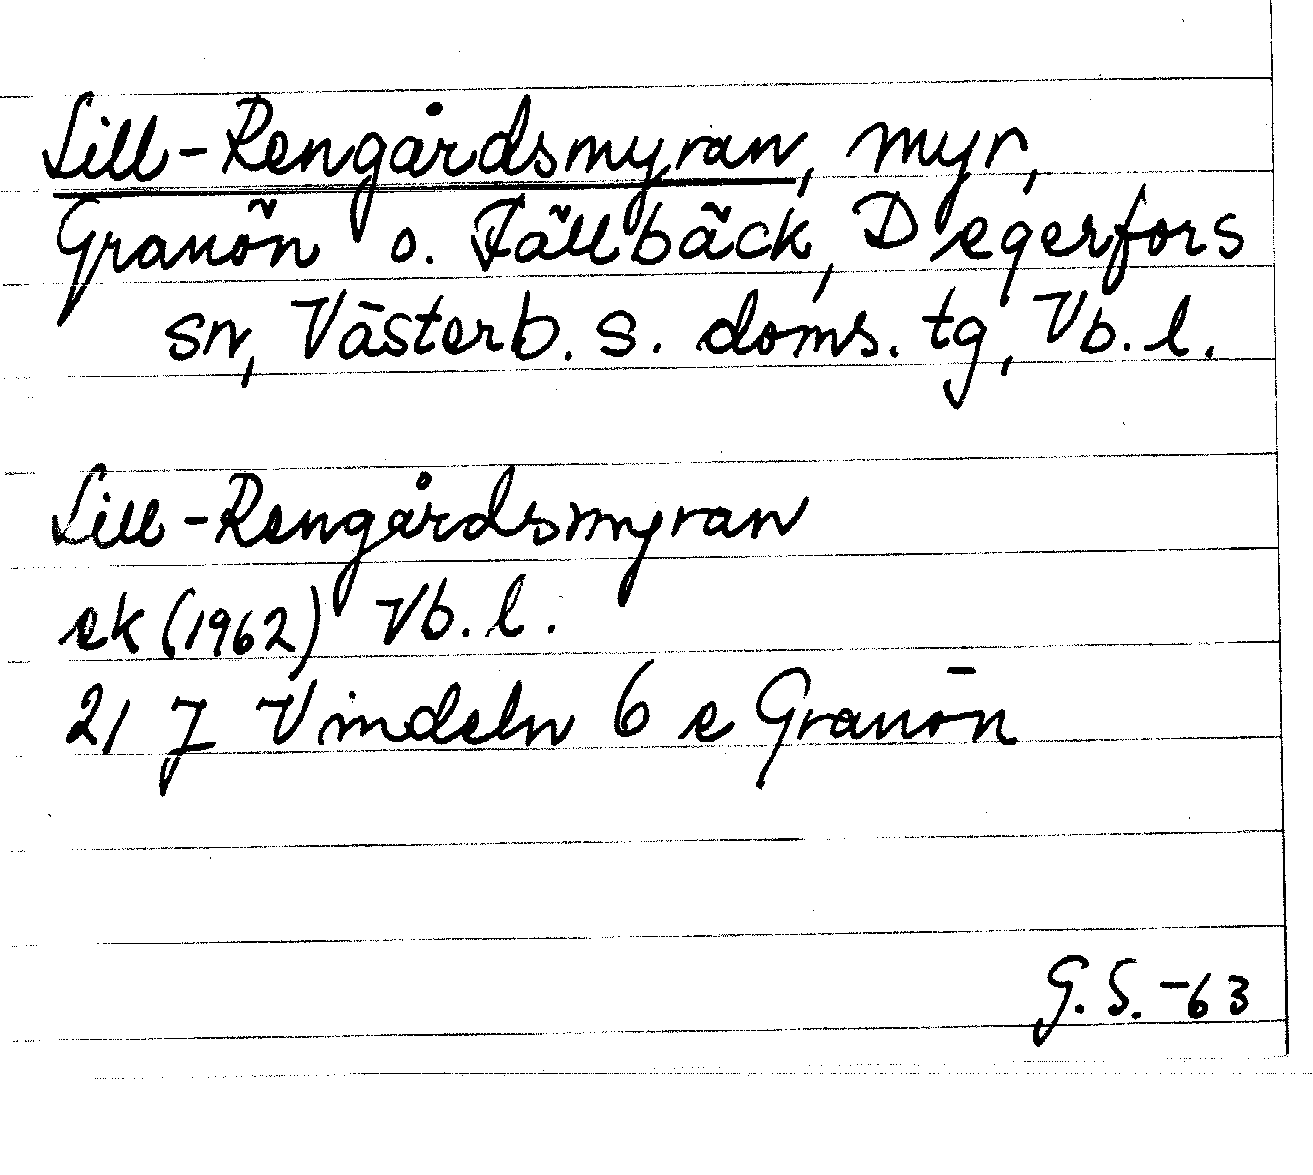 Lill-Rengårdsmyran, myr,
Granön o. Fällbäck, Degerfors
sn, Västerb. s. doms. tg, Vb. l.
Lill-Rengårdsmyran
ek (1962) Vb. l.
21 J Vindeln 6 e Granön
G. S. -63